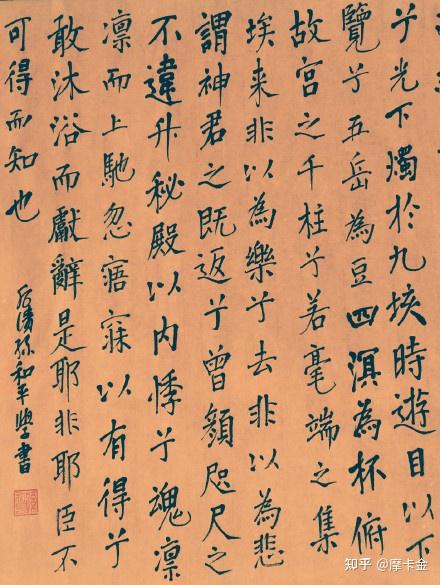 兮光下燭於九垓時遊目以下
覽兮五岳為豆四溟為杯俯
故宮之千柱兮若毫端之集
埃来非以為樂兮去非以為悲
謂神君之既返兮曾顏咫尺之
不違升秘殿以内悸兮魂凛
凛而上馳忽寤寐以有得兮
敢沐浴而獻辭是耶非耶臣不
可得而知也
孫和平學書
知乎 @摩卡金